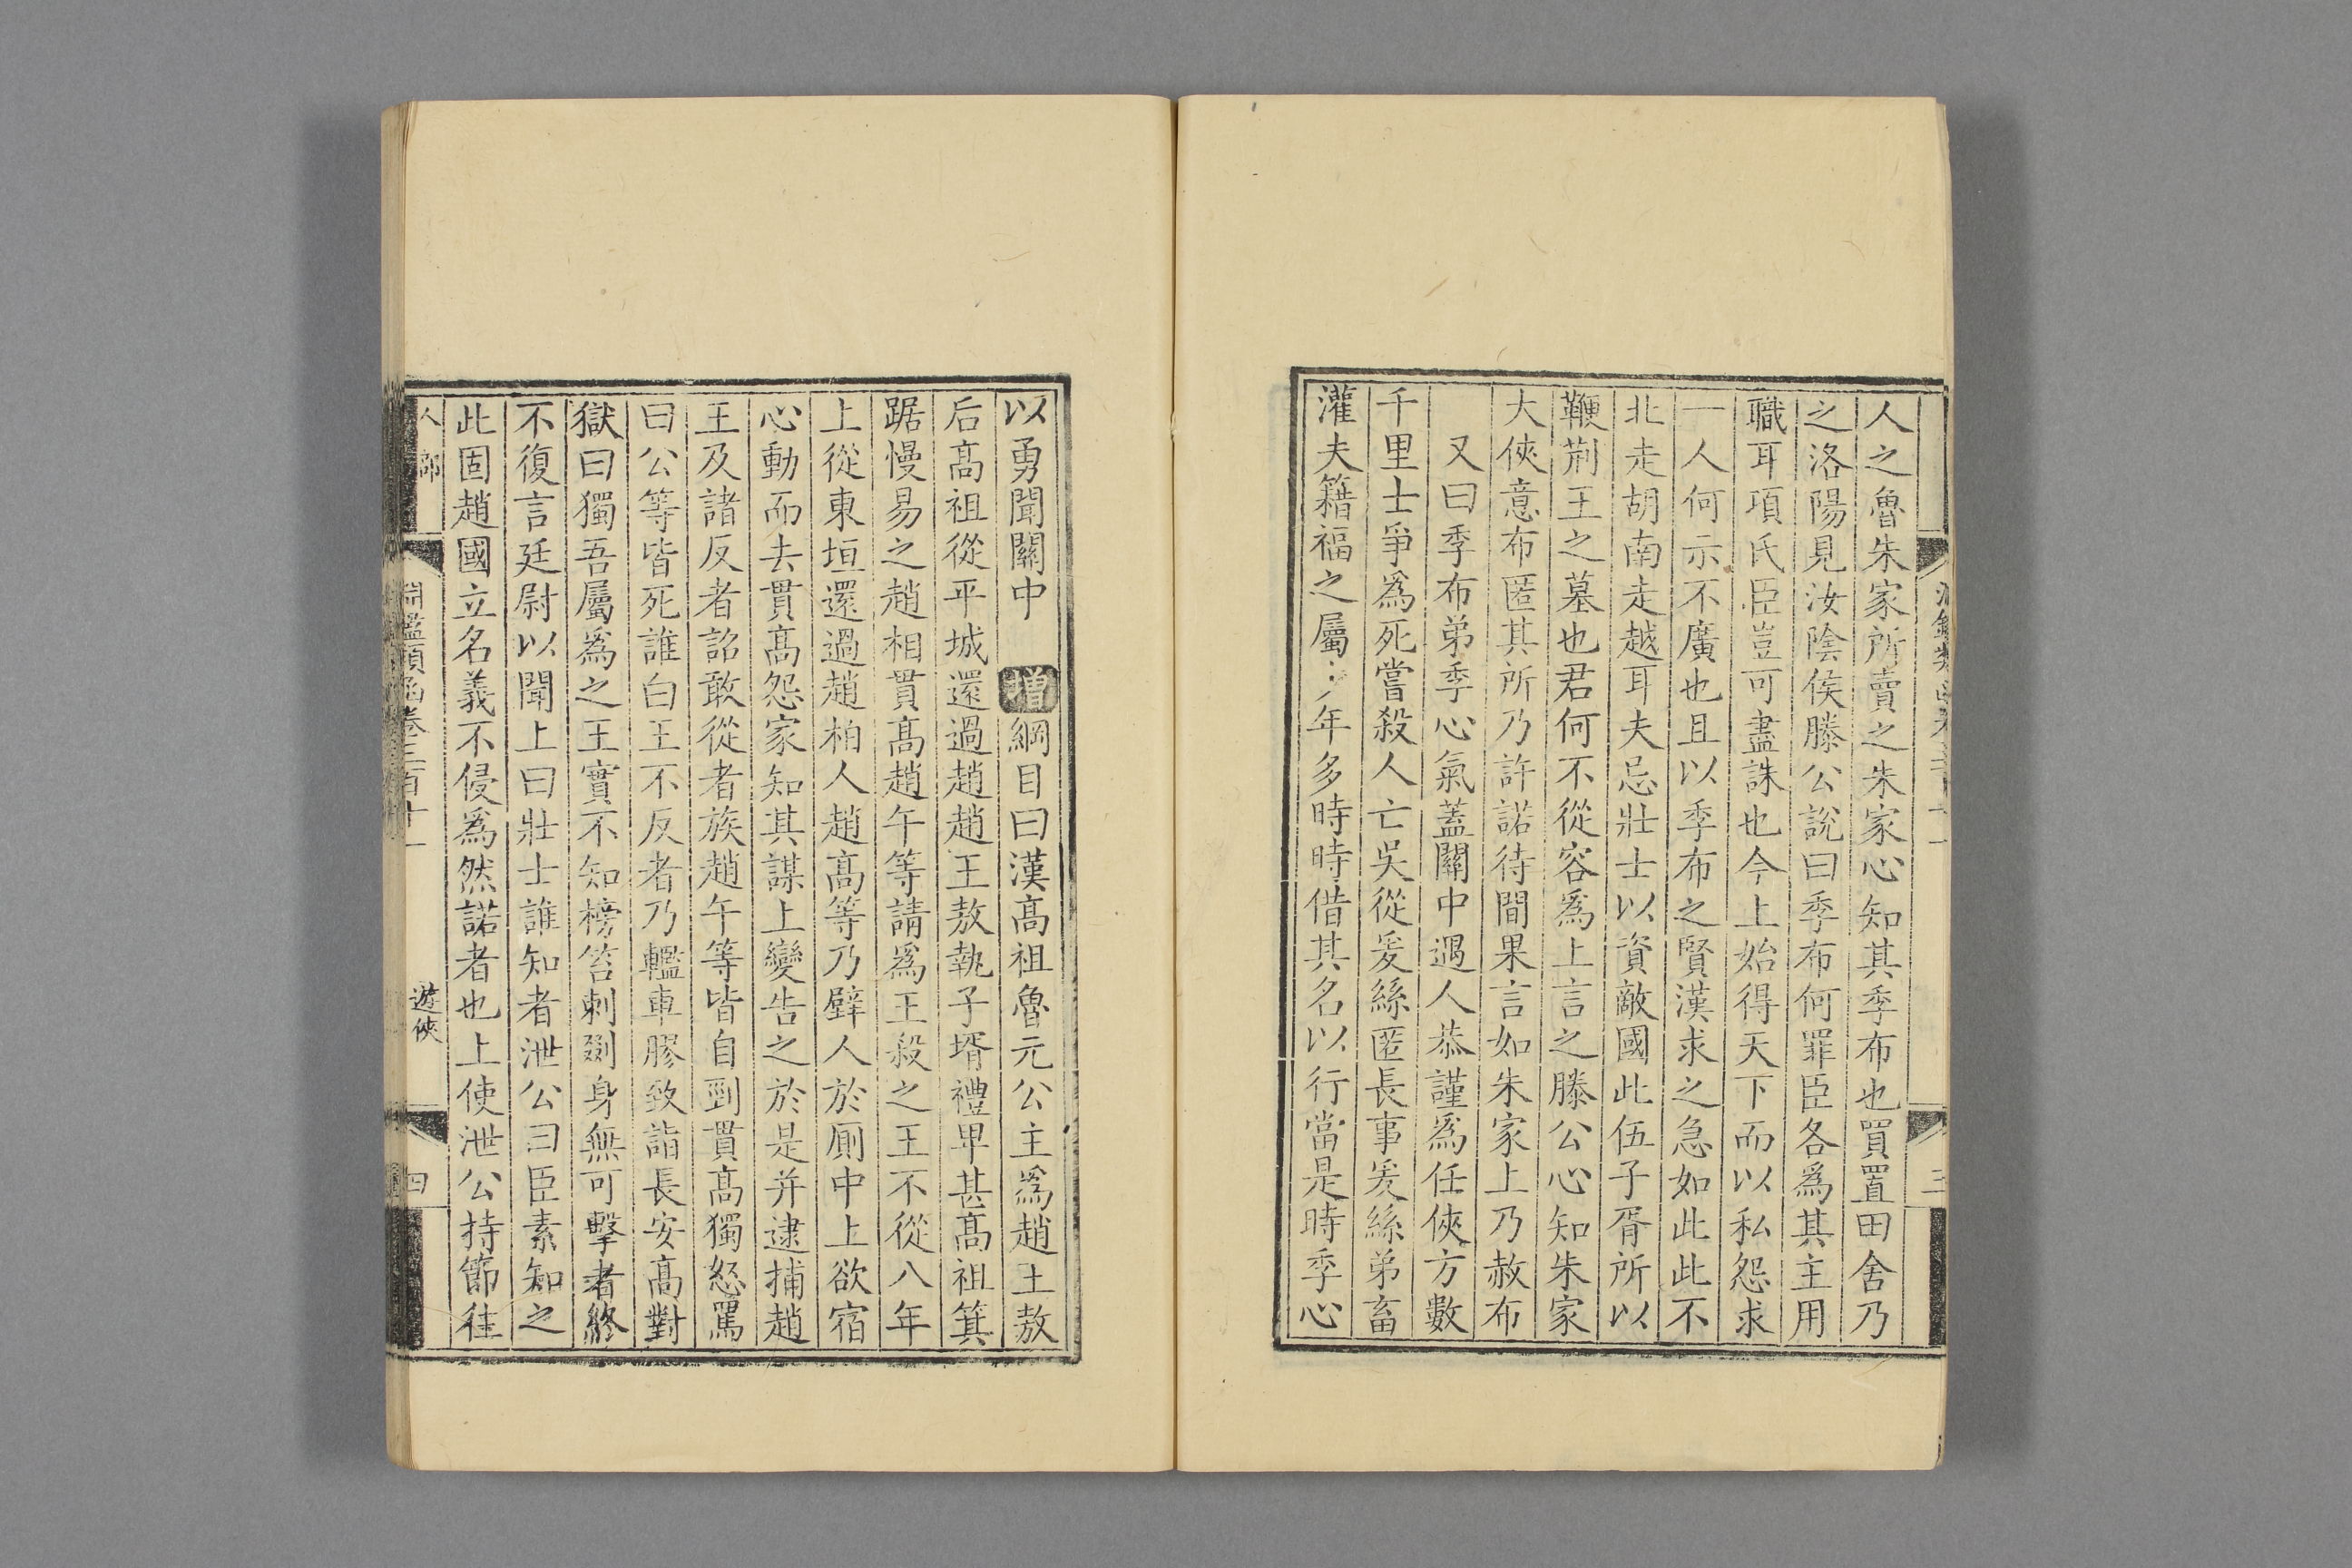 人之魯朱家所賣之朱家心知其季布也買置田舍乃
之洛陽見汝陰侯滕公說曰季布何罪臣各爲其主用
職耳項氏臣豈可盡誅也今上始得天下而以私怨求
一人何示不廣也且以季布之賢漢求之急如此此不
北走胡南走越耳夫忌壯士以資敵國此伍子胥所以
鞭荊王之墓也君何不從容爲上言之滕公心知朱家
大俠意布匿其所乃許諾待間果言如朱家上乃赦布
又曰季布弟季心氣蓋關中遇人恭謹爲任俠方數
千里士爭爲死嘗殺人亡吳從爰絲匿長事爰絲弟畜
灌夫籍福之屬 年多時時借其名以行當是時季心
三
以勇聞關中 增綱目曰漢高祖魯元公主爲趙王敖
后高祖從平城還過趙趙王敖執子壻禮卑甚高祖箕
踞慢易之趙相貫高趙午等請爲王殺之王不從八年
上從東垣還過趙柏人趙高等乃壁人於厠中上欲宿
心動而去貫高怨家知其謀上變告之於是并逮捕趙
王及諸反者詔敢從者族趙午等皆自剄貫高獨怒罵
曰公等皆死誰白王不反者乃轞車膠致詣長安高對
獄曰獨吾屬爲之王實不知榜笞刺剟身無可擊者終
不復言廷尉以聞上曰壯士誰知者泄公曰臣素知之
此固趙國立名義不侵爲然諾者也上使泄公持節往
人部
淵鑑類函卷三百十一
遊俠
四